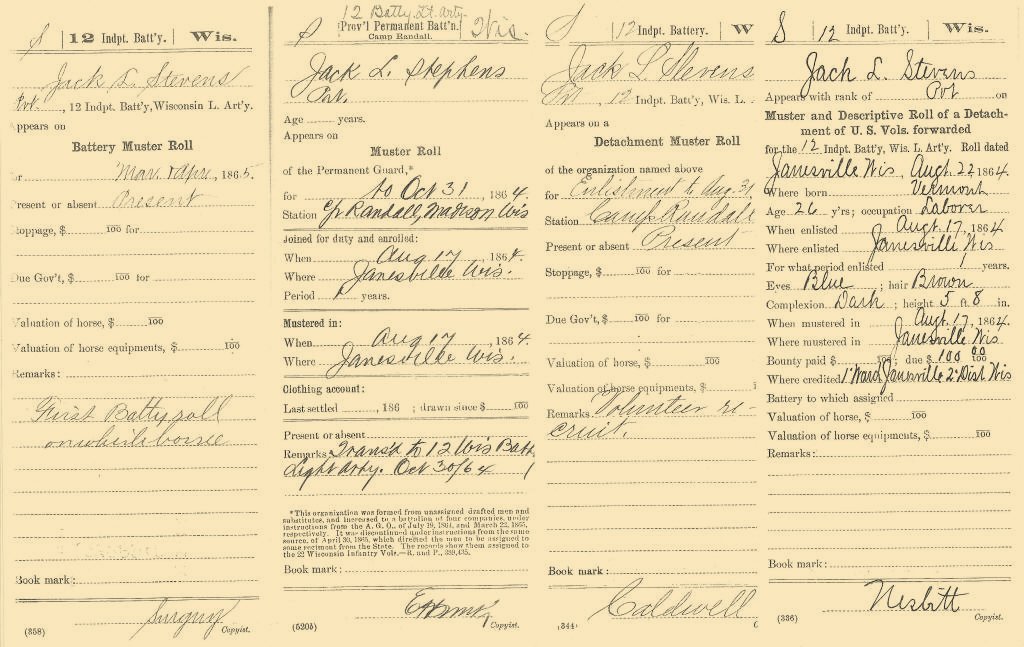 S | 12 Indpt. Batt'y. | Wis.
Jack L. Stevens
Pvt., 12 Indpt. Batt'y, Wisconsin L. Art'y.
Appears on
Battery Muster Roll
for Mar. & Apr., 1865.
Present or absent Present
Stoppage, $ 100 for
Due Gov't, $ 100 for
Valuation of horse, $ 100
Valuation of horse equipments, $ 100
Remarks:
First Batty roll
on which borne
Book mark:
Copyist.
(358)
12 Batty. Lt. Arty.
S | Prov'l Permanent Batt'n. | Wis.
Camp Randall.
Jack L. Stephens
Pvt.
Age years.
Appears on
Muster Roll
of the Permanent Guard,*
for to Oct 31, 1864.
Station Cp Randall, Madison Wis
Joined for duty and enrolled:
When Aug 17, 1864.
Where Janesville Wis.
Period 1 years.
Mustered in:
When Aug 17, 1864
Where Janesville Wis.
Clothing account:
Last settled , 186 ; drawn since $ 100
Present or absent
Remarks: Transd to 12 Wis Batt
Light Arty. Oct 30/64
*This organization was formed from unassigned drafted men and
substitutes, and increased to a battalion of four companies, under
instructions from the A. G. O., of July 19, 1864, and March 22, 1865,
respectively. It was discontinued under instructions from the same
source, of April 30, 1865, which directed the men to be assigned to
some regiment from the State. The records show them assigned to
the 22 Wisconsin Infantry Vols.—R. and P., 389,435.
Book mark:
Copyist.
(5205)
S | 12 Indpt. Battery. | W
Jack L. Stevens
Pvt, 12 Indpt. Batt'y, Wis. L.
Appears on a
Detachment Muster Roll
of the organization named above
for Enlistment to Aug. 31
Station Camp Randall
Present or absent Present
Stoppage, $ 100 for
Due Gov't, $ 100 for
Valuation of horse, $ 100
Valuation of horse equipments, $ 1
Remarks: Volunteer re-
cruit.
Book mark:
Caldwell
(344) C
S | 12 Indpt. Batt'y. | Wis.
Jack L. Stevens
Appears with rank of Pvt on
Muster and Descriptive Roll of a Detach-
ment of U. S. Vols. forwarded
for the 12 Indpt. Batt'y, Wis. L. Art'y. Roll dated
Janesville Wis, Augt. 22, 1864.
Where born Vermont
Age 26 y'rs; occupation Laborer
When enlisted Augt. 17, 1864
Where enlisted Janesville Wis
For what period enlisted 1 years.
Eyes Blue ; hair Brown
Complexion Dark ; height 5 ft. 8 in.
When mustered in Augt. 17, 1864.
Where mustered in Janesville Wis
Bounty paid $ 100 ; due $ 100 00 100
Where credited 1" Ward Janesville 2" Dist Wis
Battery to which assigned
Valuation of horse, $ 100
Valuation of horse equipments, $ 100
Remarks:
Book mark:
Nesbitt
Copyist.
(336)